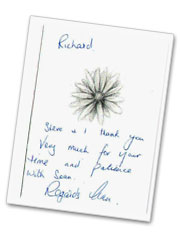 Richard
Steve & I thank you
Very much for your
time and patience
with Sean.
Regards